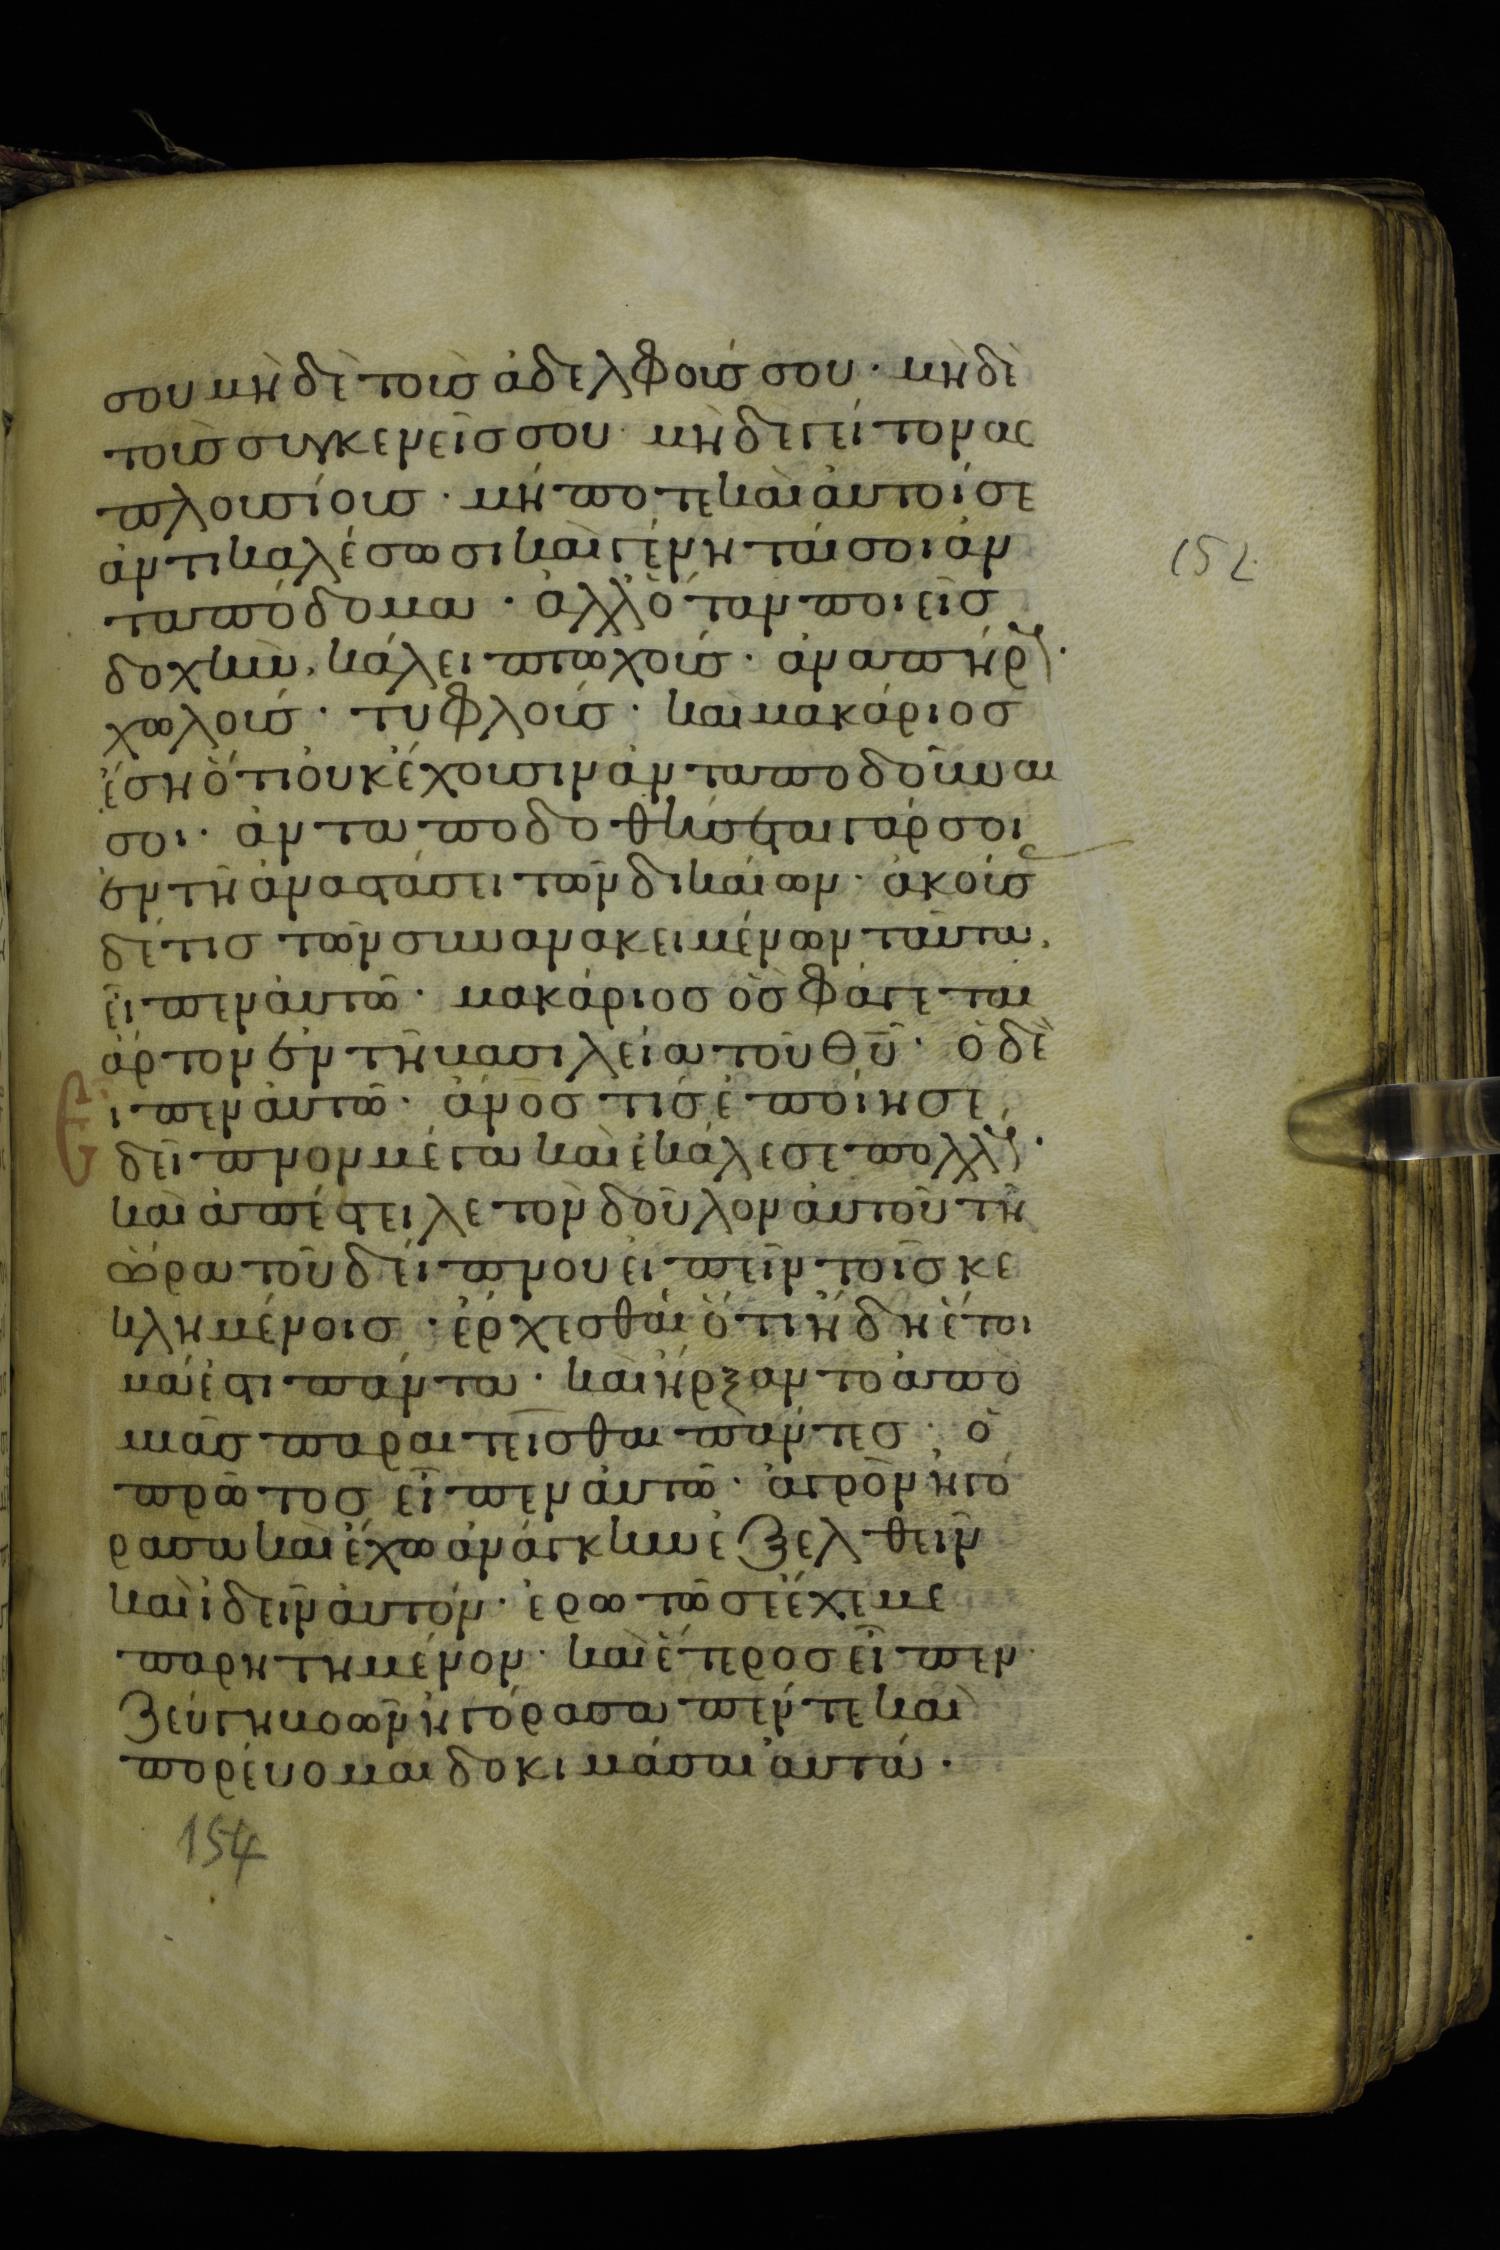 σου μηδὲ τοὺς ἀδελφούς σου · μηδὲ
τοὺς συγκενεῖς σου · μηδὲ γείτονας
πλουσίους · μήποτε καὶ αὐτοί σε
ἀντικαλέσωσι καὶ γένηταί σοι ἀν
ταπόδομα · ἀλλ' ὅταν ποιεῖς
δοχὴν, κάλει πτωχούς · ἀναπήρ(ους) ·
χωλούς · τυφλούς · καὶ μακάριος
ἔση ὅτι οὐκ ἔχουσιν ἀνταποδοῦναι
σοι · ἀνταποδοθήσεται γάρ σοι
ἐν τῆ ἀναστάσει τῶν δικαίων · ἀκούσ(ας)
δέ τις τῶν συνανακειμένων ταῦτα,
εἶπεν αὐτῶ · μακάριος ὃς φάγεται
ἄρτον ἐν τῆ βασιλεία τοῦ θῦ · ὁ δὲ
εἶπεν αὐτῶ · ἄνος τίς ἐποίησε
δεῖπνον μέγα καὶ ἐκάλεσε πολλ(ούς) ·
καὶ ἀπέστειλε τὸν δοῦλον αὐτοῦ τῆ
ὥρα τοῦ δείπνου εἰπεῖν τοῖς κε
κλημένοις · ἔρχεσθαι ὅτι ἤδη ἕτοι
μά ἐστι πάντα · καὶ ἤρξαντο ἀπὸ
μιᾶς παραιτεῖσθαι πάντες · ὁ
πρῶτος εἶπεν αὐτῶ · ἀγρὸν ἠγό
ρασα καὶ ἔχω ἀνάγκην ἐξελθεῖν
καὶ ἰδεῖν αὐτόν · ἐρωτῶ σε ἔχε με
παρητημένον · καὶ ἕτερος εἶπεν
ζεύγη βοῶν ἠγόρασα πέντε καὶ
πορεύομαι δοκιμάσαι αὐτά ·
152
154